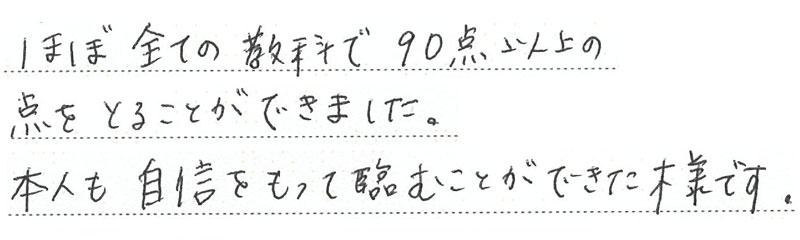 ほぼ全ての教科で90点以上の
点をとることができました。
本人も自信をもって臨むことができた様です。